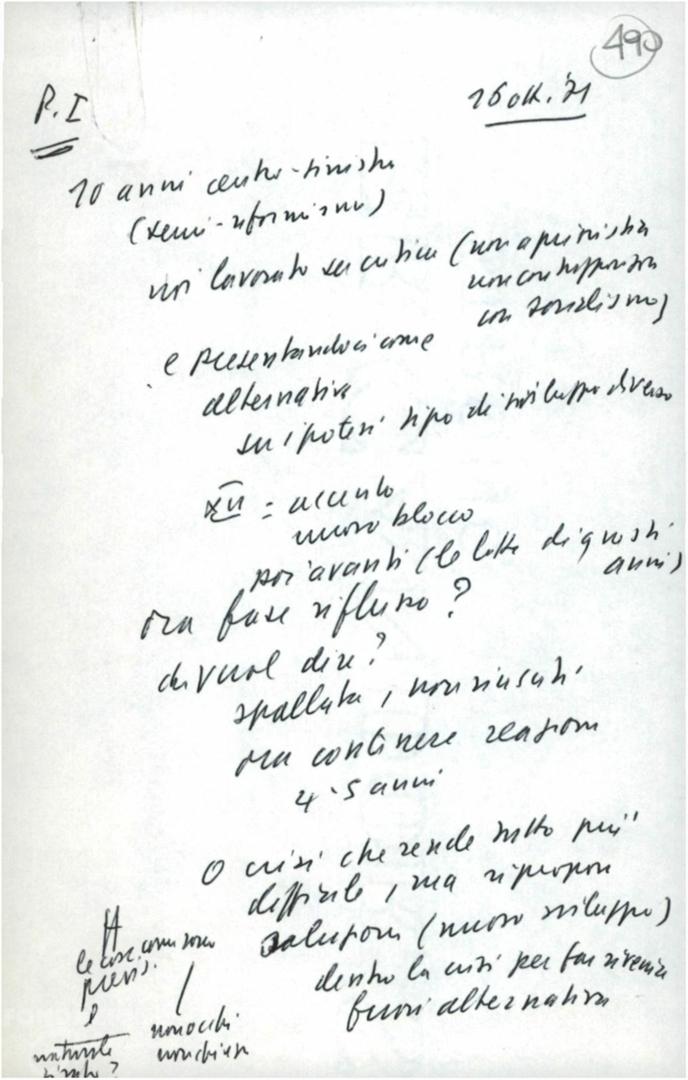 490
P.I
16 ott. '71
10 anni centro-sinistra
(semi-riformismo)
noi lavorato su critica (non aprioristica
non contrapposizion
con socialismo)
e presentandoci come
alternativa
su ipotesi tipo di sviluppo diverso
XII = accento
nuovo blocco
poi avanti (le lotte di questi
anni)
ora fase riflusso?
che vuol dire?
spallata, non riuscita
ora contenere reazione
4-5 anni
O crisi che rende tutto più
difficile, ma ripropone
soluzioni (nuovo sviluppo)
dentro la crisi per far venire
fuori alternativa
le cose come sono
e
naturale
non occhi